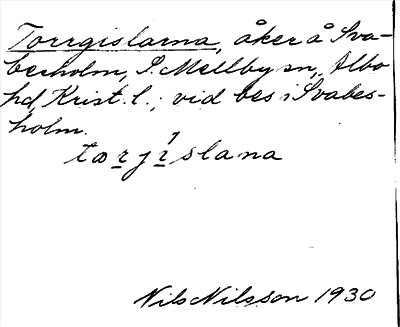 Torrgislarna, åker å Sva-
berholm, S. Mellby sn, Albo
hd, Krist. l.; vid bes i Svabes-
holm.
tɷrjislana
Nils Nilsson 1930